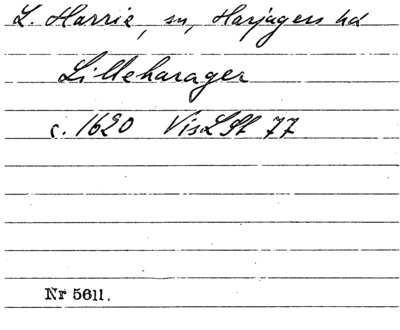 L. Harrie, sn, Harjagers hd
Lilleharager
c. 1620 VisLSt 77
Nr 5611.